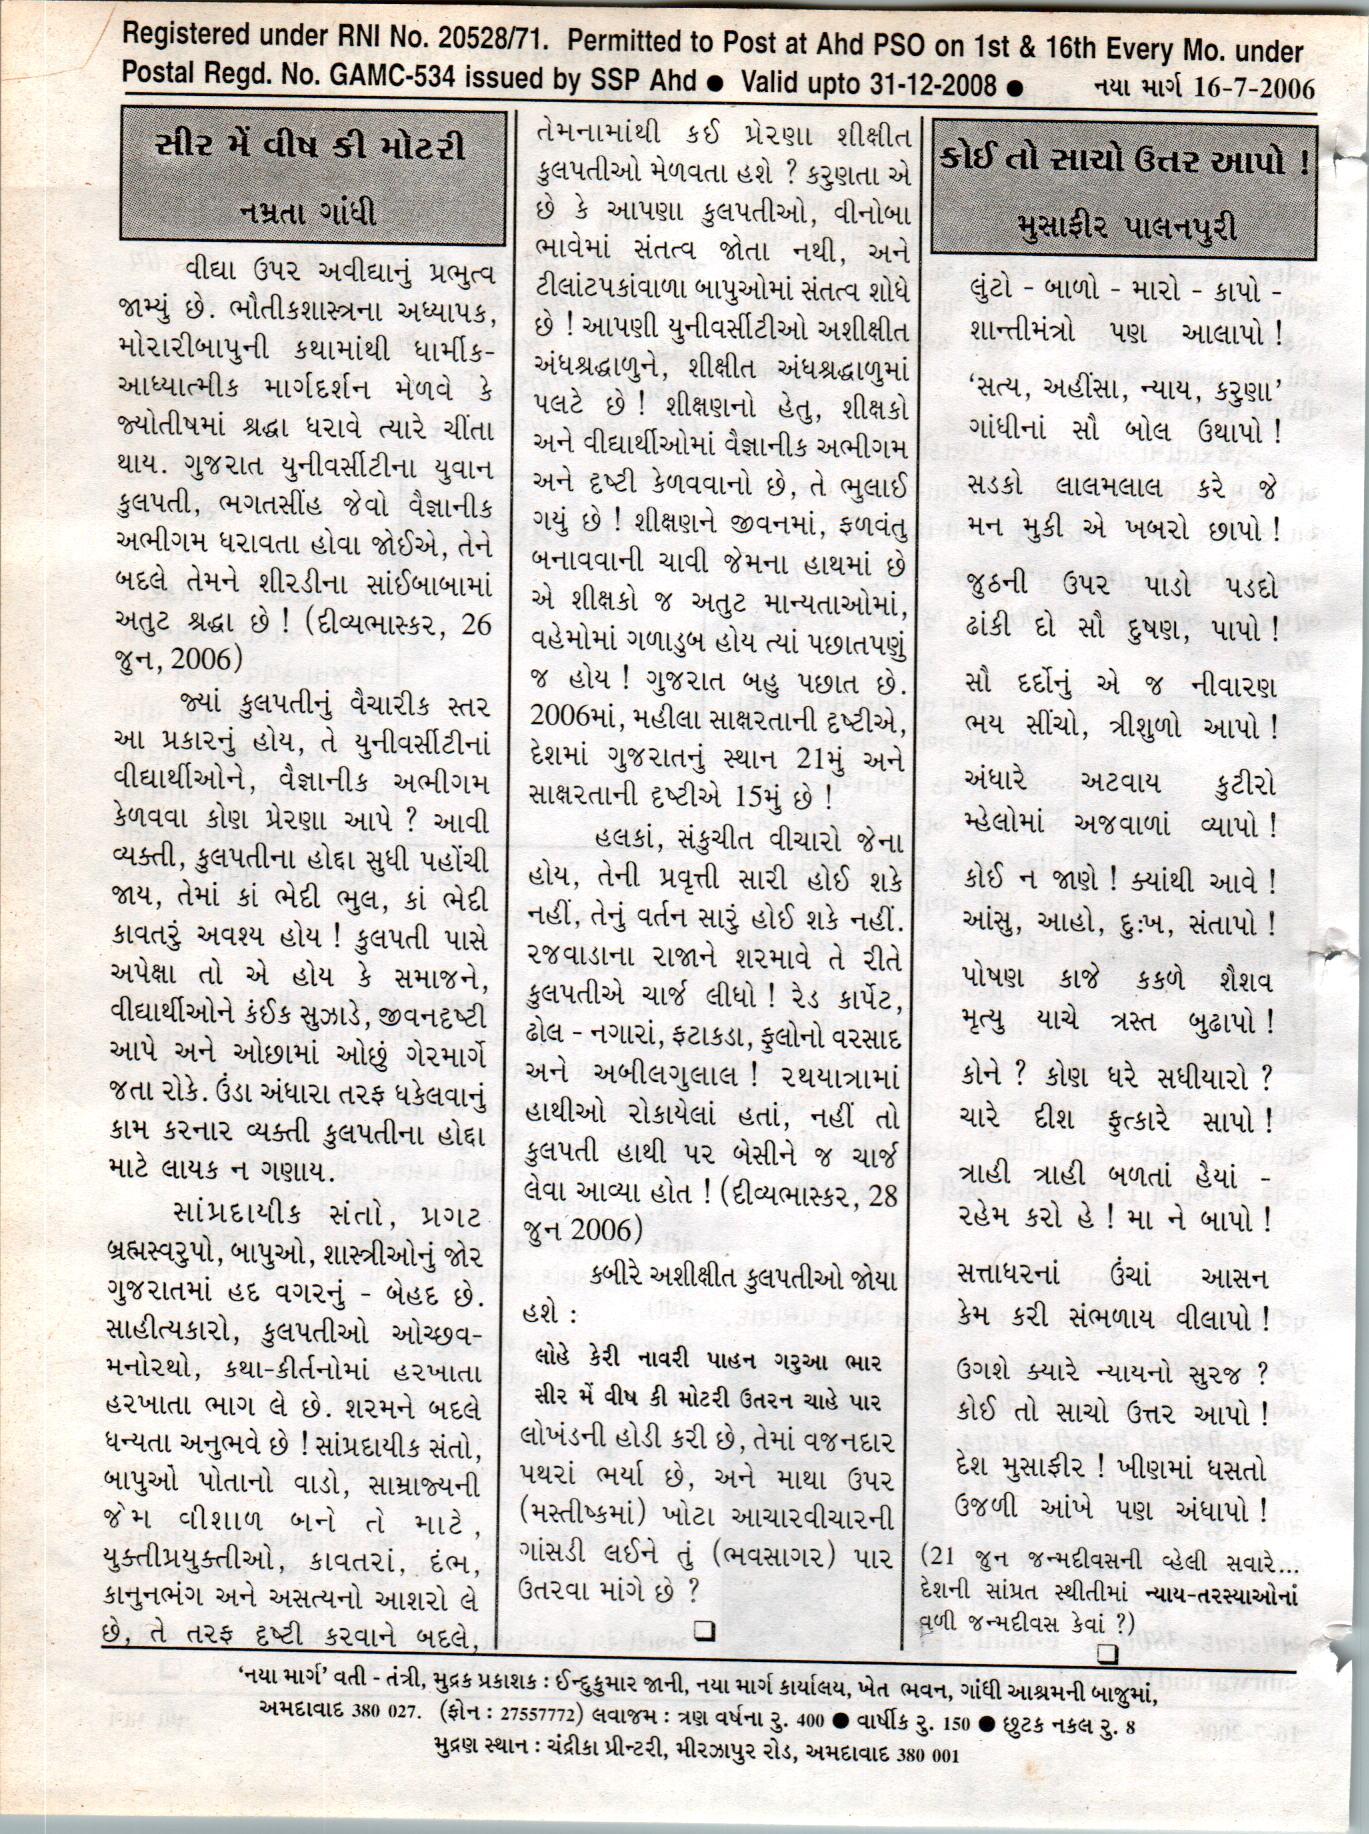 Registered under RNI No. 20528/71. Permitted to Post at Ahd PSO on 1st & 16th Every Mo. under
Postal Regd. No. GAMC-534 issued by SSP Ahd ● Valid upto 31-12-2008 ● નયા માર્ગ 16-7-2006
સીર મેં વીષ કી મોટરી
નમ્રતા ગાંધી
વીદ્યા ઉપર અવીદ્યાનું પ્રભુત્વ
જામ્યું છે. ભૌતીકશાસ્ત્રના અધ્યાપક,
મોરારીબાપુની કથામાંથી ધાર્મીક-
આધ્યાત્મીક માર્ગદર્શન મેળવે કે
જ્યોતીષમાં શ્રદ્ધા ધરાવે ત્યારે ચીંતા
થાય. ગુજરાત યુનીવર્સીટીના યુવાન
કુલપતી, ભગતસીંહ જેવો વૈજ્ઞાનીક
અભીગમ ધરાવતા હોવા જોઈએ, તેને
બદલે તેમને શીરડીના સાંઈબાબામાં
અતુટ શ્રદ્ધા છે ! (દીવ્યભાસ્કર, 26
જુન, 2006)
જ્યાં કુલપતીનું વૈચારીક સ્તર
આ પ્રકારનું હોય, તે યુનીવર્સીટીનાં
વીદ્યાર્થીઓને, વૈજ્ઞાનીક અભીગમ
કેળવવા કોણ પ્રેરણા આપે ? આવી
વ્યક્તી, કુલપતીના હોદ્દા સુધી પહોંચી
જાય, તેમાં કાં ભેદી ભુલ, કાં ભેદી
કાવતરું અવશ્ય હોય ! કુલપતી પાસે
અપેક્ષા તો એ હોય કે સમાજને,
વીદ્યાર્થીઓને કંઈક સુઝાડે, જીવનદૃષ્ટી
આપે અને ઓછામાં ઓછું ગેરમાર્ગે
જતા રોકે. ઉંડા અંધારા તરફ ધકેલવાનું
કામ કરનાર વ્યક્તી કુલપતીના હોદ્દા
માટે લાયક ન ગણાય.
સાંપ્રદાયીક સંતો, પ્રગટ
બ્રહ્મસ્વરુપો, બાપુઓ, શાસ્ત્રીઓનું જોર
ગુજરાતમાં હદ વગરનું - બેહદ છે.
સાહીત્યકારો, કુલપતીઓ ઓચ્છવ-
મનોરથો, કથા-કીર્તનોમાં હરખાતા
હરખાતા ભાગ લે છે. શરમને બદલે
ધન્યતા અનુભવે છે ! સાંપ્રદાયીક સંતો,
બાપુઓ પોતાનો વાડો, સામ્રાજ્યની
જેમ વીશાળ બને તે માટે,
યુક્તીપ્રયુક્તીઓ, કાવતરાં, દંભ,
કાનુનભંગ અને અસત્યનો આશરો લે
છે, તે તરફ દૃષ્ટી કરવાને બદલે,
તેમનામાંથી કઈ પ્રેરણા શીક્ષીત
કુલપતીઓ મેળવતા હશે ? કરુણતા એ
છે કે આપણા કુલપતીઓ, વીનોબા
ભાવેમાં સંતત્વ જોતા નથી, અને
ટીલાંટપકાંવાળા બાપુઓમાં સંતત્વ શોધે
છે ! આપણી યુનીવર્સીટીઓ અશીક્ષીત
અંધશ્રદ્ધાળુને, શીક્ષીત અંધશ્રદ્ધાળુમાં
પલટે છે ! શીક્ષણનો હેતુ, શીક્ષકો
અને વીદ્યાર્થીઓમાં વૈજ્ઞાનીક અભીગમ
અને દૃષ્ટી કેળવવાનો છે, તે ભુલાઈ
ગયું છે ! શીક્ષણને જીવનમાં, ફળવંતુ
બનાવવાની ચાવી જેમના હાથમાં છે
એ શીક્ષકો જ અતુટ માન્યતાઓમાં,
વહેમોમાં ગળાડુબ હોય ત્યાં પછાતપણું
જ હોય ! ગુજરાત બહુ પછાત છે.
2006માં, મહીલા સાક્ષરતાની દૃષ્ટીએ,
દેશમાં ગુજરાતનું સ્થાન 21મું અને
સાક્ષરતાની દૃષ્ટીએ 15મું છે !
હલકાં, સંકુચીત વીચારો જેના
હોય, તેની પ્રવૃત્તી સારી હોઈ શકે
નહીં, તેનું વર્તન સારું હોઈ શકે નહીં.
રજવાડાના રાજાને શરમાવે તે રીતે
કુલપતીએ ચાર્જ લીધો ! રેડ કાર્પેટ,
ઢોલ - નગારાં, ફટાકડા, ફુલોનો વરસાદ
અને અબીલગુલાલ ! રથયાત્રામાં
હાથીઓ રોકાયેલાં હતાં, નહીં તો
કુલપતી હાથી પર બેસીને જ ચાર્જ
લેવા આવ્યા હોત ! (દીવ્યભાસ્કર, 28
જુન 2006)
કબીરે અશીક્ષીત કુલપતીઓ જોયા
હશે :
લોહે કેરી નાવરી પાહન ગરુઆ ભાર
સીર મેં વીષ કી મોટરી ઉતરન ચાહે પાર
લોખંડની હોડી કરી છે, તેમાં વજનદાર
પથરાં ભર્યા છે, અને માથા ઉપર
(મસ્તીષ્કમાં) ખોટા આચારવીચારની
ગાંસડી લઈને તું (ભવસાગર) પાર
ઉતરવા માંગે છે ?
❑
કોઈ તો સાચો ઉત્તર આપો !
મુસાફીર પાલનપુરી
લુંટો - બાળો - મારો - કાપો -
શાન્તીમંત્રો પણ આલાપો !
‘સત્ય, અહીંસા, ન્યાય, કરુણા’
ગાંધીનાં સૌ બોલ ઉથાપો !
સડકો લાલમલાલ કરે જે
મન મુકી એ ખબરો છાપો !
જુઠની ઉપર પાડો પડદો
ઢાંકી દો સૌ દુષણ, પાપો !
સૌ દર્દોનું એ જ નીવારણ
ભય સીંચો, ત્રીશુળો આપો !
અંધારે અટવાય કુટીરો
મ્હેલોમાં અજવાળાં વ્યાપો !
કોઈ ન જાણે ! ક્યાંથી આવે !
આંસુ, આહો, દુઃખ, સંતાપો !
પોષણ કાજે કકળે શૈશવ
મૃત્યુ યાચે ત્રસ્ત બુઢાપો !
કોને ? કોણ ધરે સધીયારો ?
ચારે દીશ ફુત્કારે સાપો !
ત્રાહી ત્રાહી બળતાં હૈયાં -
રહેમ કરો હે ! મા ને બાપો !
સત્તાધરનાં ઉંચાં આસન
કેમ કરી સંભળાય વીલાપો !
ઉગશે ક્યારે ન્યાયનો સુરજ ?
કોઈ તો સાચો ઉત્તર આપો !
દેશ મુસાફીર ! ખીણમાં ધસતો
ઉજળી આંખે પણ અંધાપો !
(21 જુન જન્મદીવસની વ્હેલી સવારે...
દેશની સાંપ્રત સ્થીતીમાં ન્યાય-તરસ્યાઓનાં
વળી જન્મદીવસ કેવાં ?)
❑
‘નયા માર્ગ’ વતી - તંત્રી, મુદ્રક પ્રકાશક : ઈન્દુકુમાર જાની, નયા માર્ગ કાર્યાલય, ખેત ભવન, ગાંધી આશ્રમની બાજુમાં,
અમદાવાદ 380 027. (ફોન : 27557772) લવાજમ : ત્રણ વર્ષના રુ. 400 ● વાર્ષીક રુ. 150 ● છુટક નકલ રુ. 8
મુદ્રણ સ્થાન : ચંદ્રીકા પ્રીન્ટરી, મીરઝાપુર રોડ, અમદાવાદ 380 001